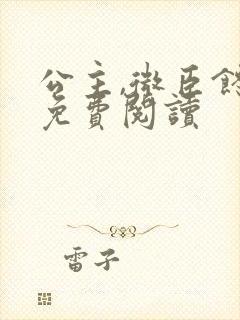 公主,微臣
免費閱讀
雷子